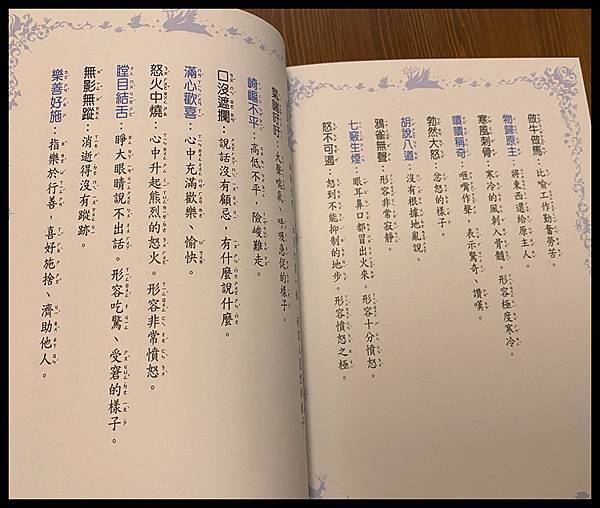 做牛做馬：比喻工作勤奮勞苦。
物歸原主：將東西還給原主人。
寒風刺骨：寒冷的風刺入骨髓。形容極度寒冷。
嘖嘖稱奇：咂嘴作聲，表示驚奇、讚嘆。
勃然大怒：忿怒的樣子。
胡說八道：沒有根據地亂說。
鴉雀無聲：形容非常寂靜。
七竅生煙：眼耳鼻口都冒出火來。形容十分憤怒。
怒不可遏：怒到不能抑制的地步。形容憤怒之極。
氣喘吁吁：大聲喘氣、呼吸急促的樣子。
崎嶇不平：高低不平，險峻難走。
口沒遮攔：說話沒有顧忌，有什麼說什麼。
滿心歡喜：心中充滿歡樂、愉快。
怒火中燒：心中升起熊烈的怒火。形容非常憤怒。
瞠目結舌：睜大眼睛說不出話。形容吃驚、受窘的樣子。
無影無蹤：消逝得沒有蹤跡。
樂善好施：指樂於行善，喜好施捨、濟助他人。